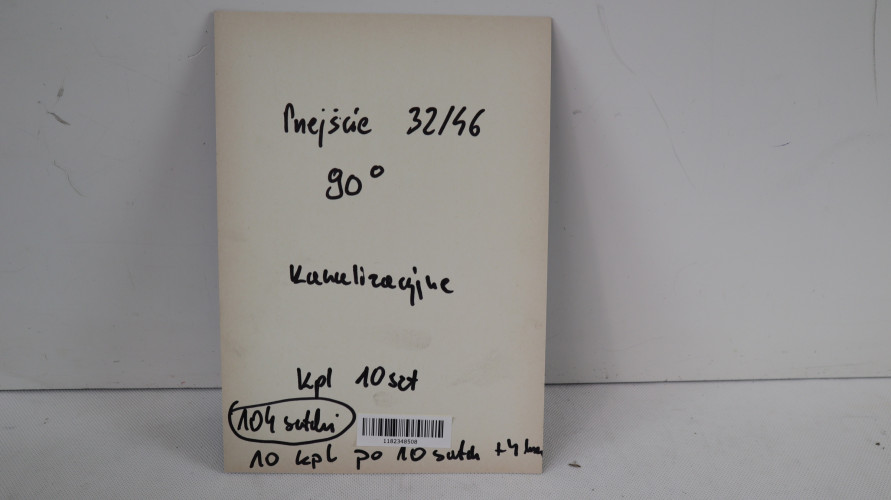 Przejście 32/46
90°
Kanalizacyjne
kpl 10 szt
104 sztuki
1182348508
10 kpl po 10 sztuk + 4